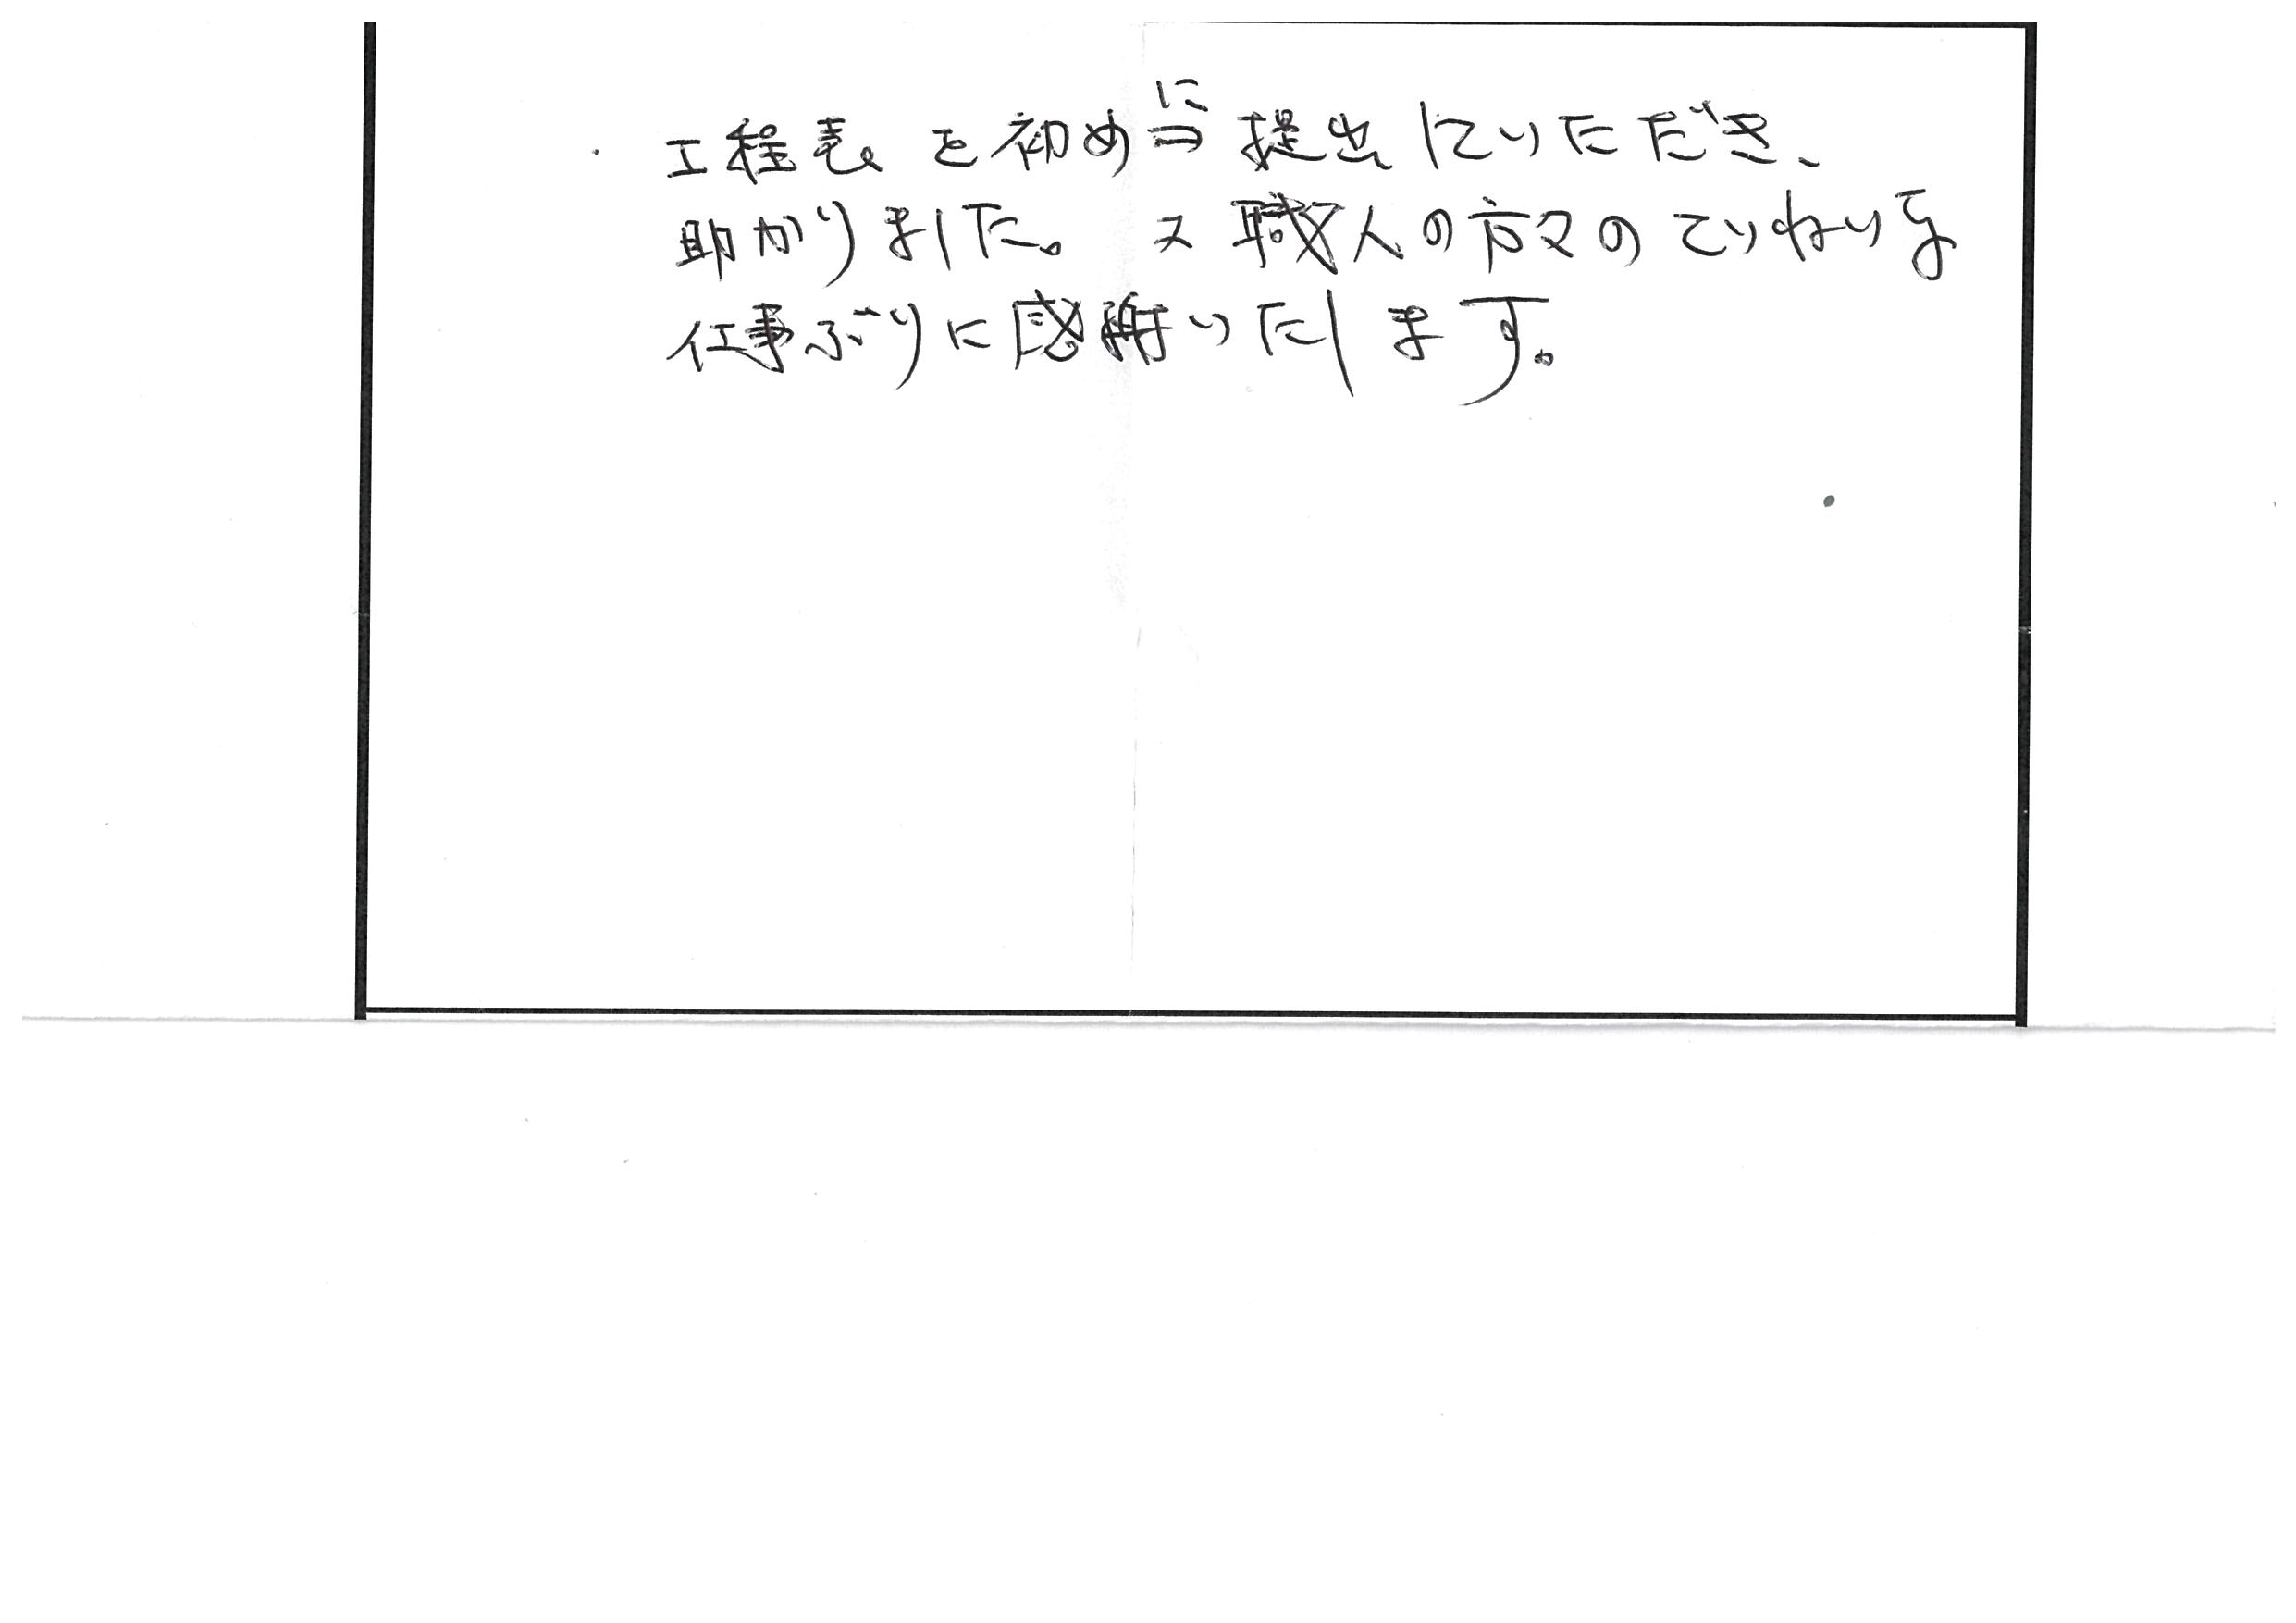 ・工程表を初めに提出していただき、
助かりました。又職人の方々のていねいな
仕事ぶりに感謝いたします。